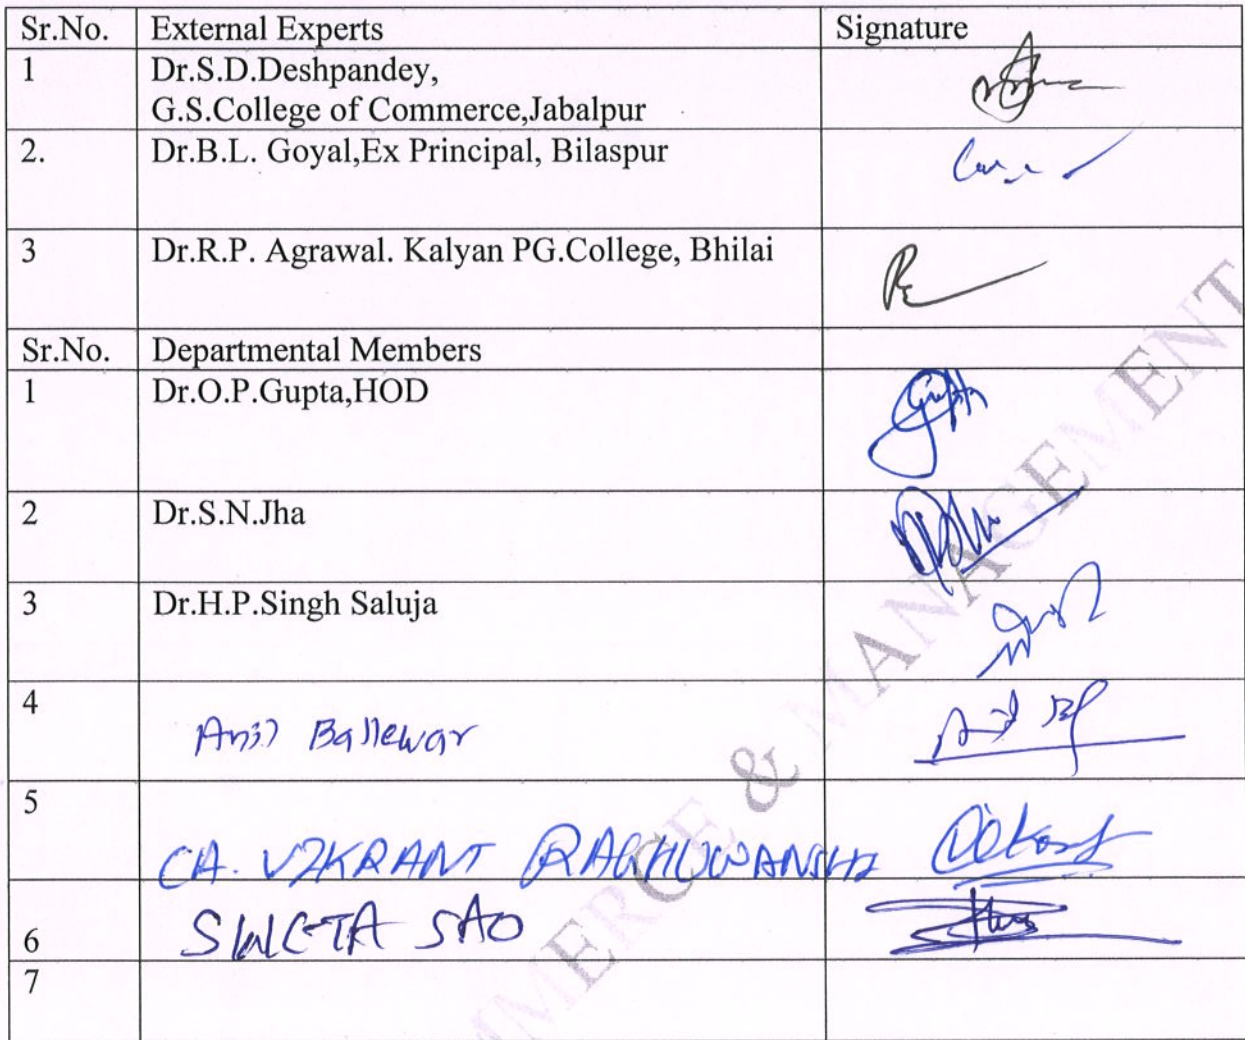 Sr.No. External Experts Signature
1 Dr.S.D.Deshpandey,
G.S.College of Commerce,Jabalpur
2. Dr.B.L. Goyal,Ex Principal, Bilaspur
3 Dr.R.P. Agrawal. Kalyan PG.College, Bhilai
Sr.No. Departmental Members
1 Dr.O.P.Gupta,HOD
2 Dr.S.N.Jha
3 Dr.H.P.Singh Saluja
4 Anil Ballewar
5
CA. VIKRANT RAGHUWANSHI
6 SWETA SAO
7
MMERCE & MANAGEMENT